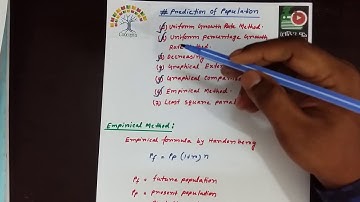 # Prediction of Population
(1) Uniform Growth Rate Method.
(2) Uniform Percentage Growth
Rate Method.
(3) Decreasing
(4) Graphical Exten
(5) Graphical compari
(6) Empirical Method.
(7) Least square para
Empirical Method:
Empirical formula by Hardenberg
Pf = Pp (1+r)n
Pf = future population
Pp = present population